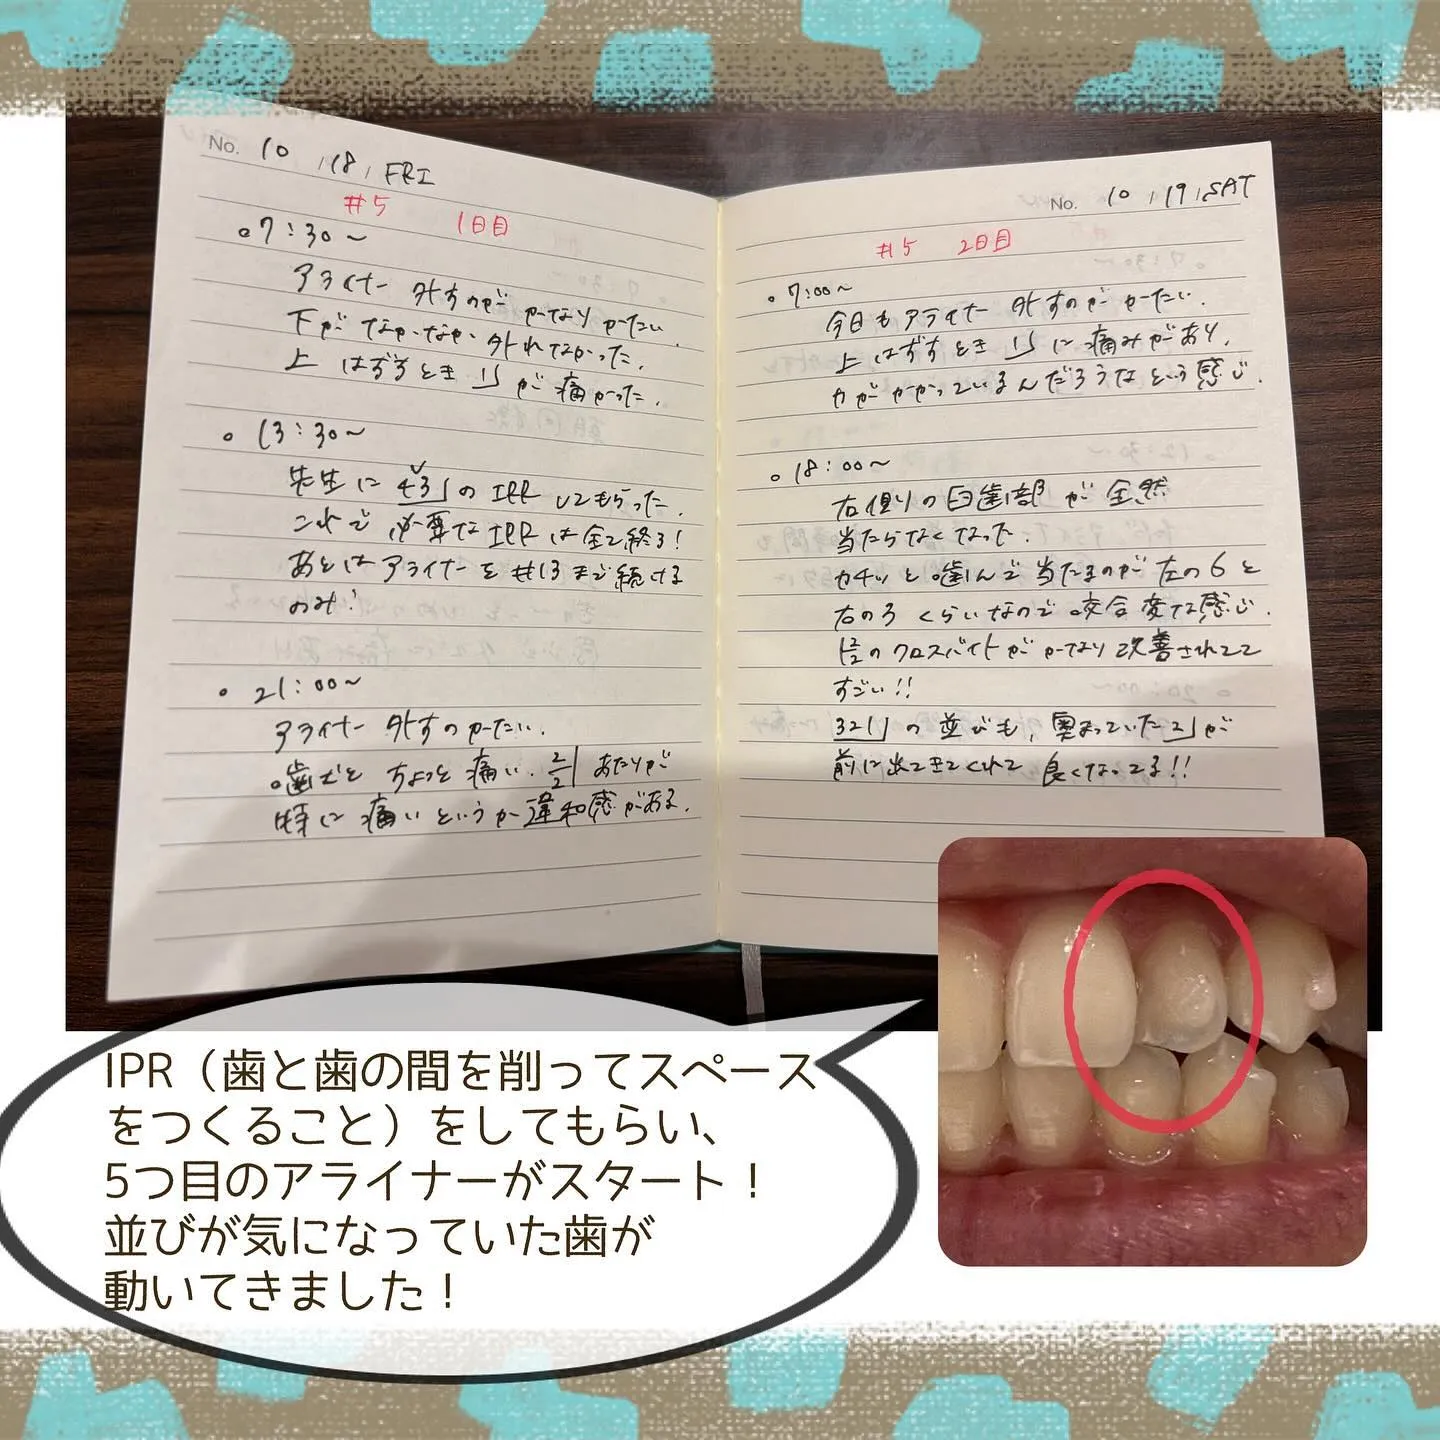 No. 10 / 18 / FRI
#5 1日目
○7:30～
アライナー 外すのが かなり かたい
下が なかなか 外れなかった.
上 はずすとき 1┘が 痛かった.
○ 13:30～
先生に 43┘の IPR してもらった.
これで 必要な IPR は全て終了!
あとは アライナーを #13まで続ける
のみ!
○ 21:00～
アライナー 外すの かたい.
噛むと ちょっと 痛い. 2/2| あたりが
特に 痛いというか 違和感がある.
No. 10 / 19 / SAT
#5 2日目
○ 7:00～
今日も アライナー 外すのが かたい.
上 はずすとき 1┘に 痛みがあり,
力が かかっているんだろうなという感じ.
○ 18:00～
右側の臼歯部が 全然
当たらなくなった.
カチッと 噛んで 当たるのが 左の6と
右の3 くらいなので 咬合 変な感じ.
|2/2の クロスバイトが かなり 改善されてて
すごい!!
321┘の 並びも, 奥まっていた2┘が
前に出てきてくれて 良くなってる!!
IPR（歯と歯の間を削ってスペース
をつくること）をしてもらい、
5つ目のアライナーがスタート！
並びが気になっていた歯が
動いてきました！